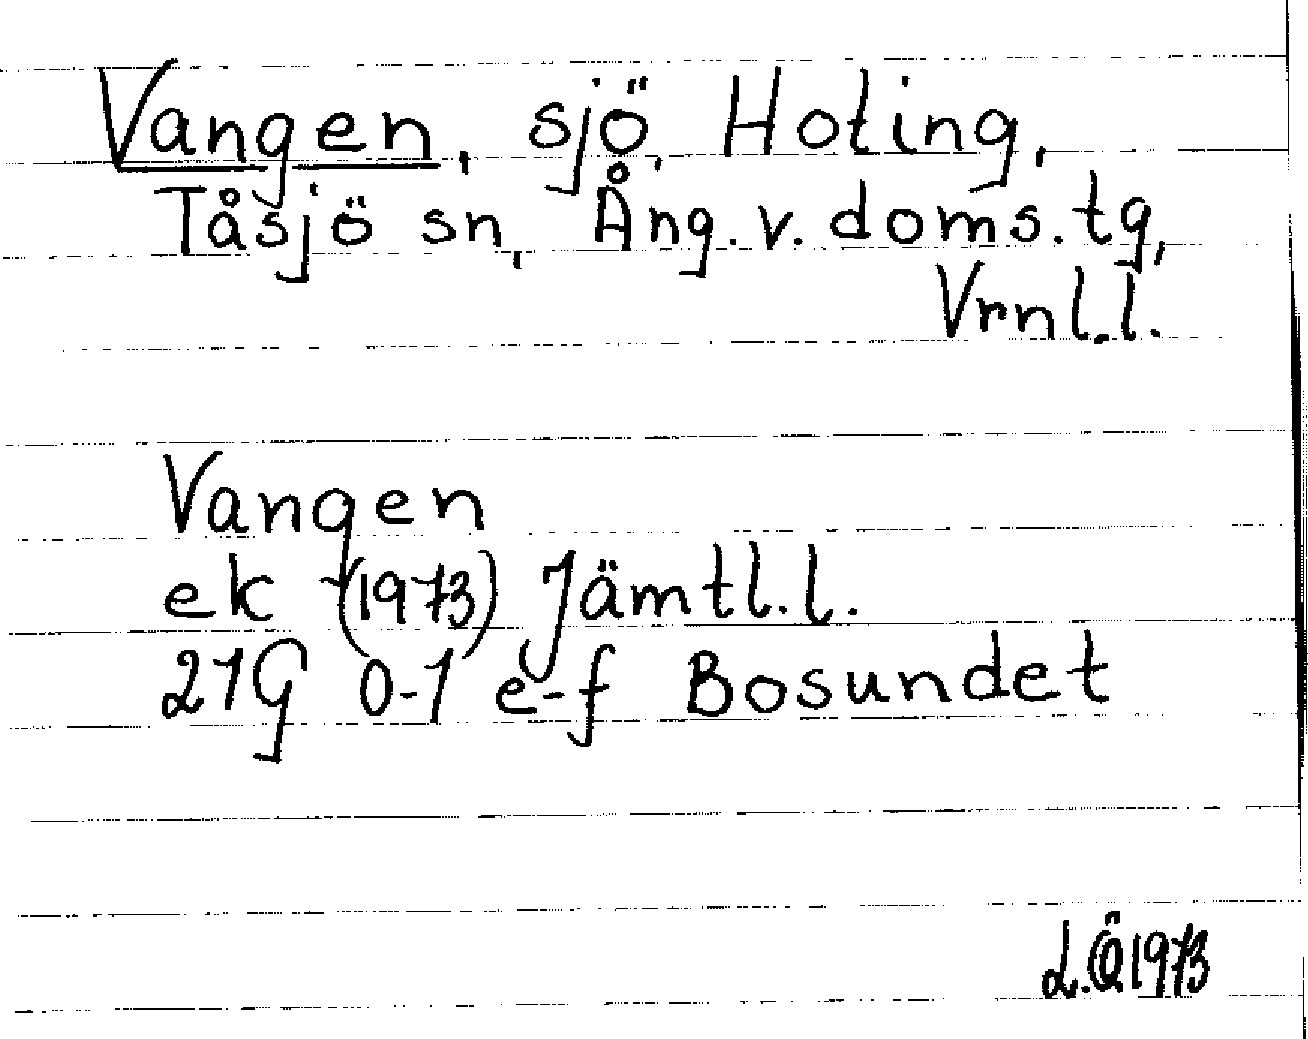 Vangen, sjö, Hoting,
Tåsjö sn, Ång.v.doms.tg,
Vrnl.l.
Vangen
ek (1973) Jämtl.l.
21G 0-1 e-f Bosundet
L.Ö 1973